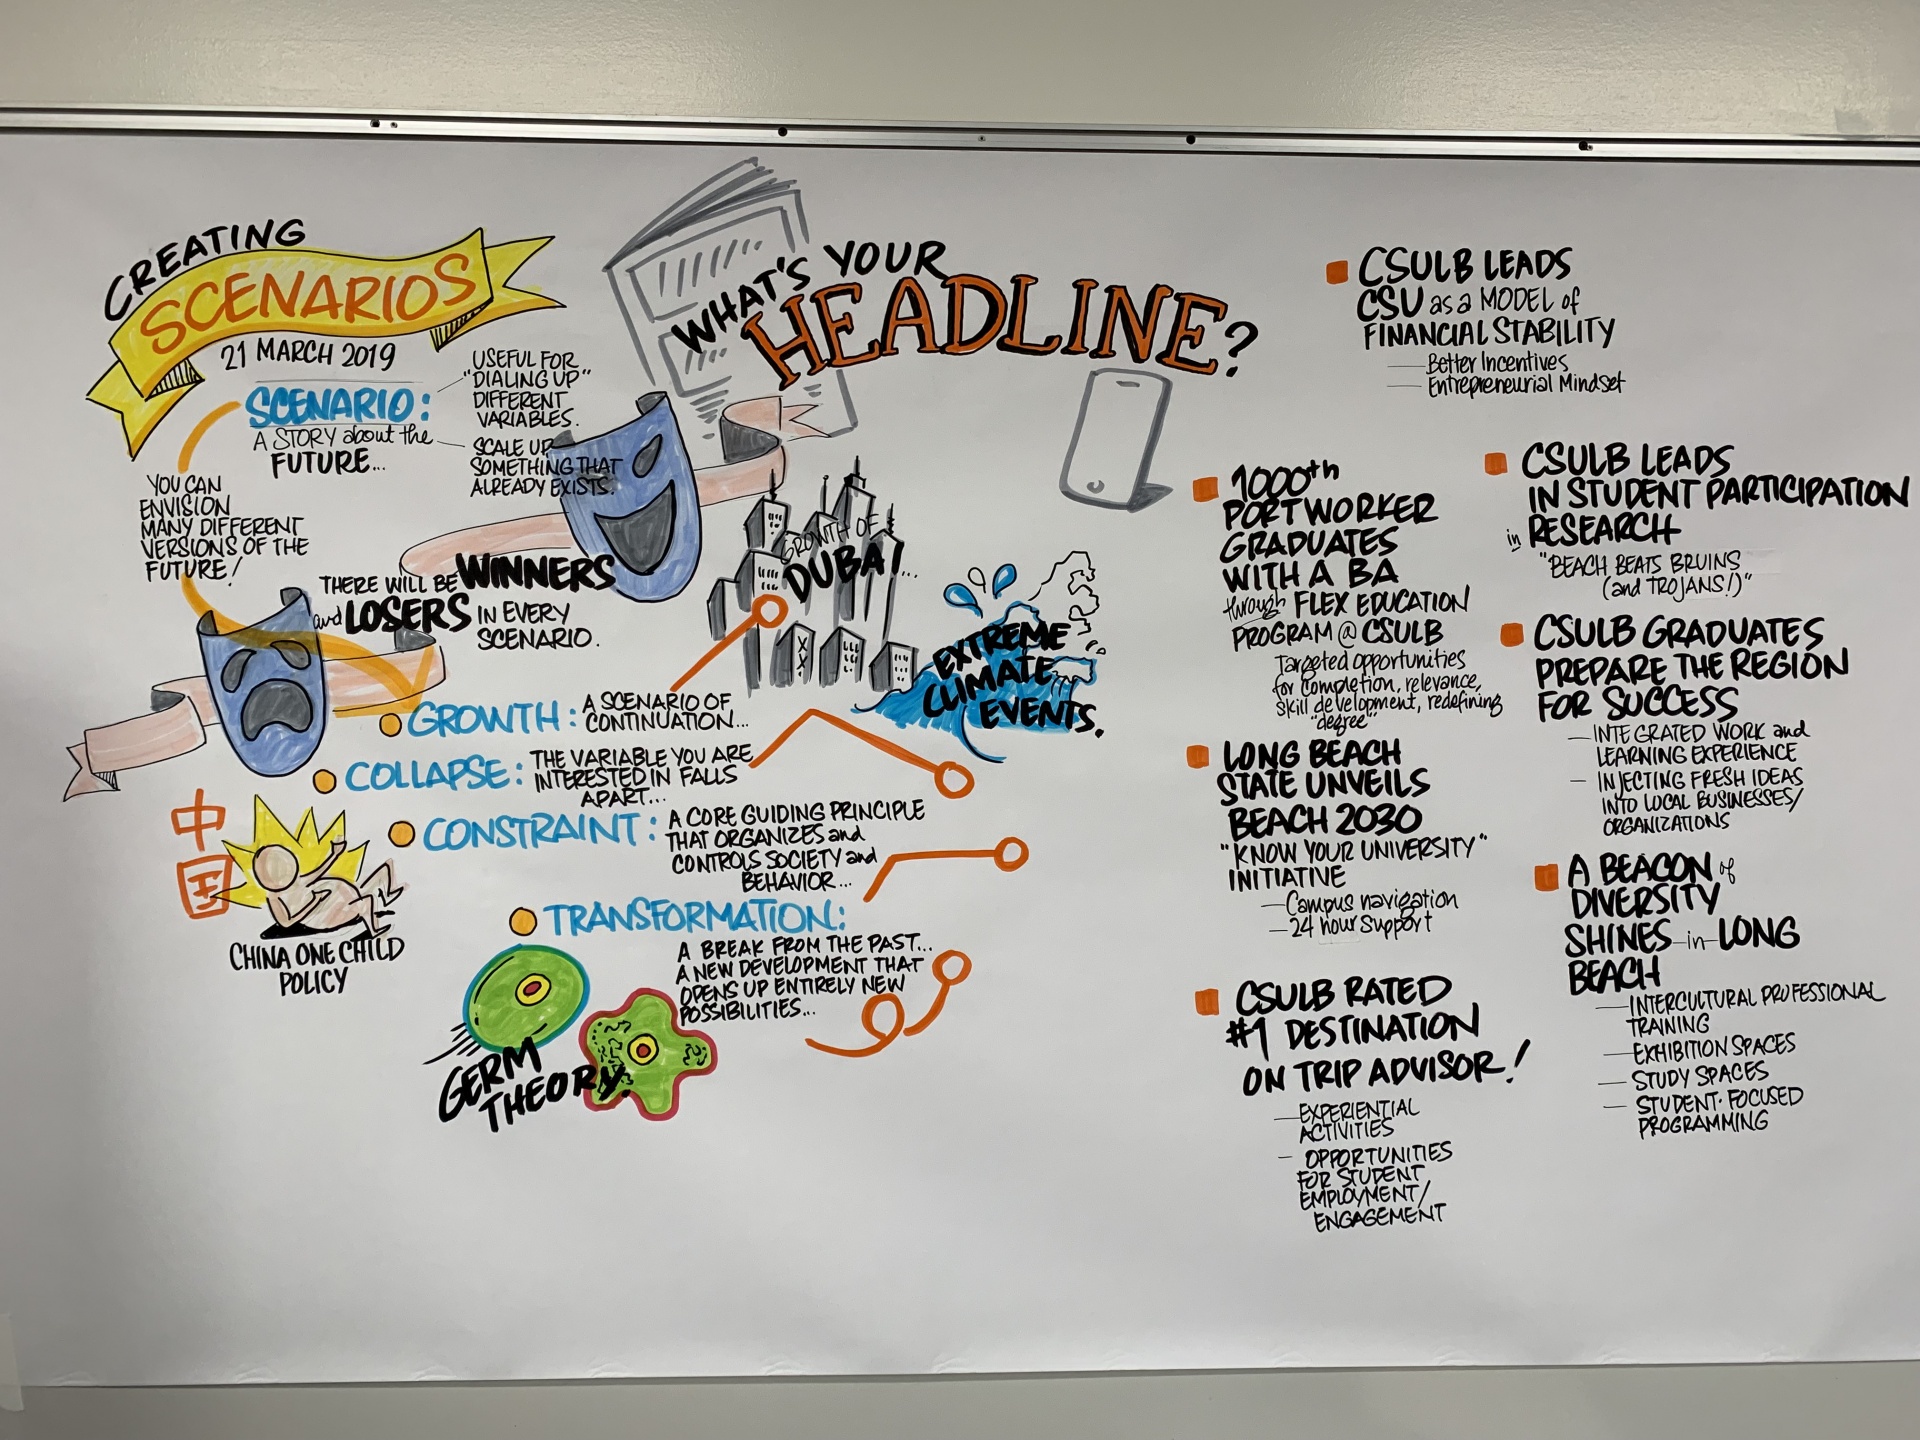 CREATING
SCENARIOS
21 MARCH 2019
SCENARIO:
A STORY about the
FUTURE...
USEFUL FOR
"DIALING UP"
DIFFERENT
VARIABLES.
SCALE UP
SOMETHING THAT
ALREADY EXISTS.
YOU CAN
ENVISION
MANY DIFFERENT
VERSIONS OF THE
FUTURE!
THERE WILL BE WINNERS
and LOSERS IN EVERY
SCENARIO.
GROWTH: A SCENARIO OF
CONTINUATION...
COLLAPSE: THE VARIABLE YOU ARE
INTERESTED IN FALLS
APART...
CONSTRAINT: A CORE GUIDING PRINCIPLE
THAT ORGANIZES and
CONTROLS SOCIETY and
BEHAVIOR...
TRANSFORMATION:
A BREAK FROM THE PAST...
A NEW DEVELOPMENT THAT
OPENS UP ENTIRELY NEW
POSSIBILITIES...
中
国
CHINA ONE CHILD
POLICY
GERM
THEORY.
GROWTH OF
DUBAI...
EXTREME
CLIMATE
EVENTS.
WHAT'S YOUR
HEADLINE?
CSULB LEADS
CSU as a MODEL of
FINANCIAL STABILITY
— Better Incentives
— Entrepreneurial Mindset
1000th
PORT WORKER
GRADUATES
WITH A BA
through FLEX EDUCATION
PROGRAM @ CSULB
Targeted opportunities
for completion, relevance,
skill development, redefining
"degree"
LONG BEACH
STATE UNVEILS
BEACH 2030
"KNOW YOUR UNIVERSITY"
INITIATIVE
— Campus navigation
— 24 hour support
CSULB RATED
#1 DESTINATION
ON TRIP ADVISOR!
— EXPERIENTIAL
ACTIVITIES
— OPPORTUNITIES
FOR STUDENT
EMPLOYMENT/
ENGAGEMENT
CSULB LEADS
IN STUDENT PARTICIPATION
in RESEARCH
"BEACH BEATS BRUINS
(and TROJANS!)"
CSULB GRADUATES
PREPARE THE REGION
FOR SUCCESS
— INTEGRATED WORK and
LEARNING EXPERIENCE
— INJECTING FRESH IDEAS
INTO LOCAL BUSINESSES/
ORGANIZATIONS
A BEACON of
DIVERSITY
SHINES—in—LONG
BEACH
— INTERCULTURAL PROFESSIONAL
TRAINING
— EXHIBITION SPACES
— STUDY SPACES
— STUDENT-FOCUSED
PROGRAMMING